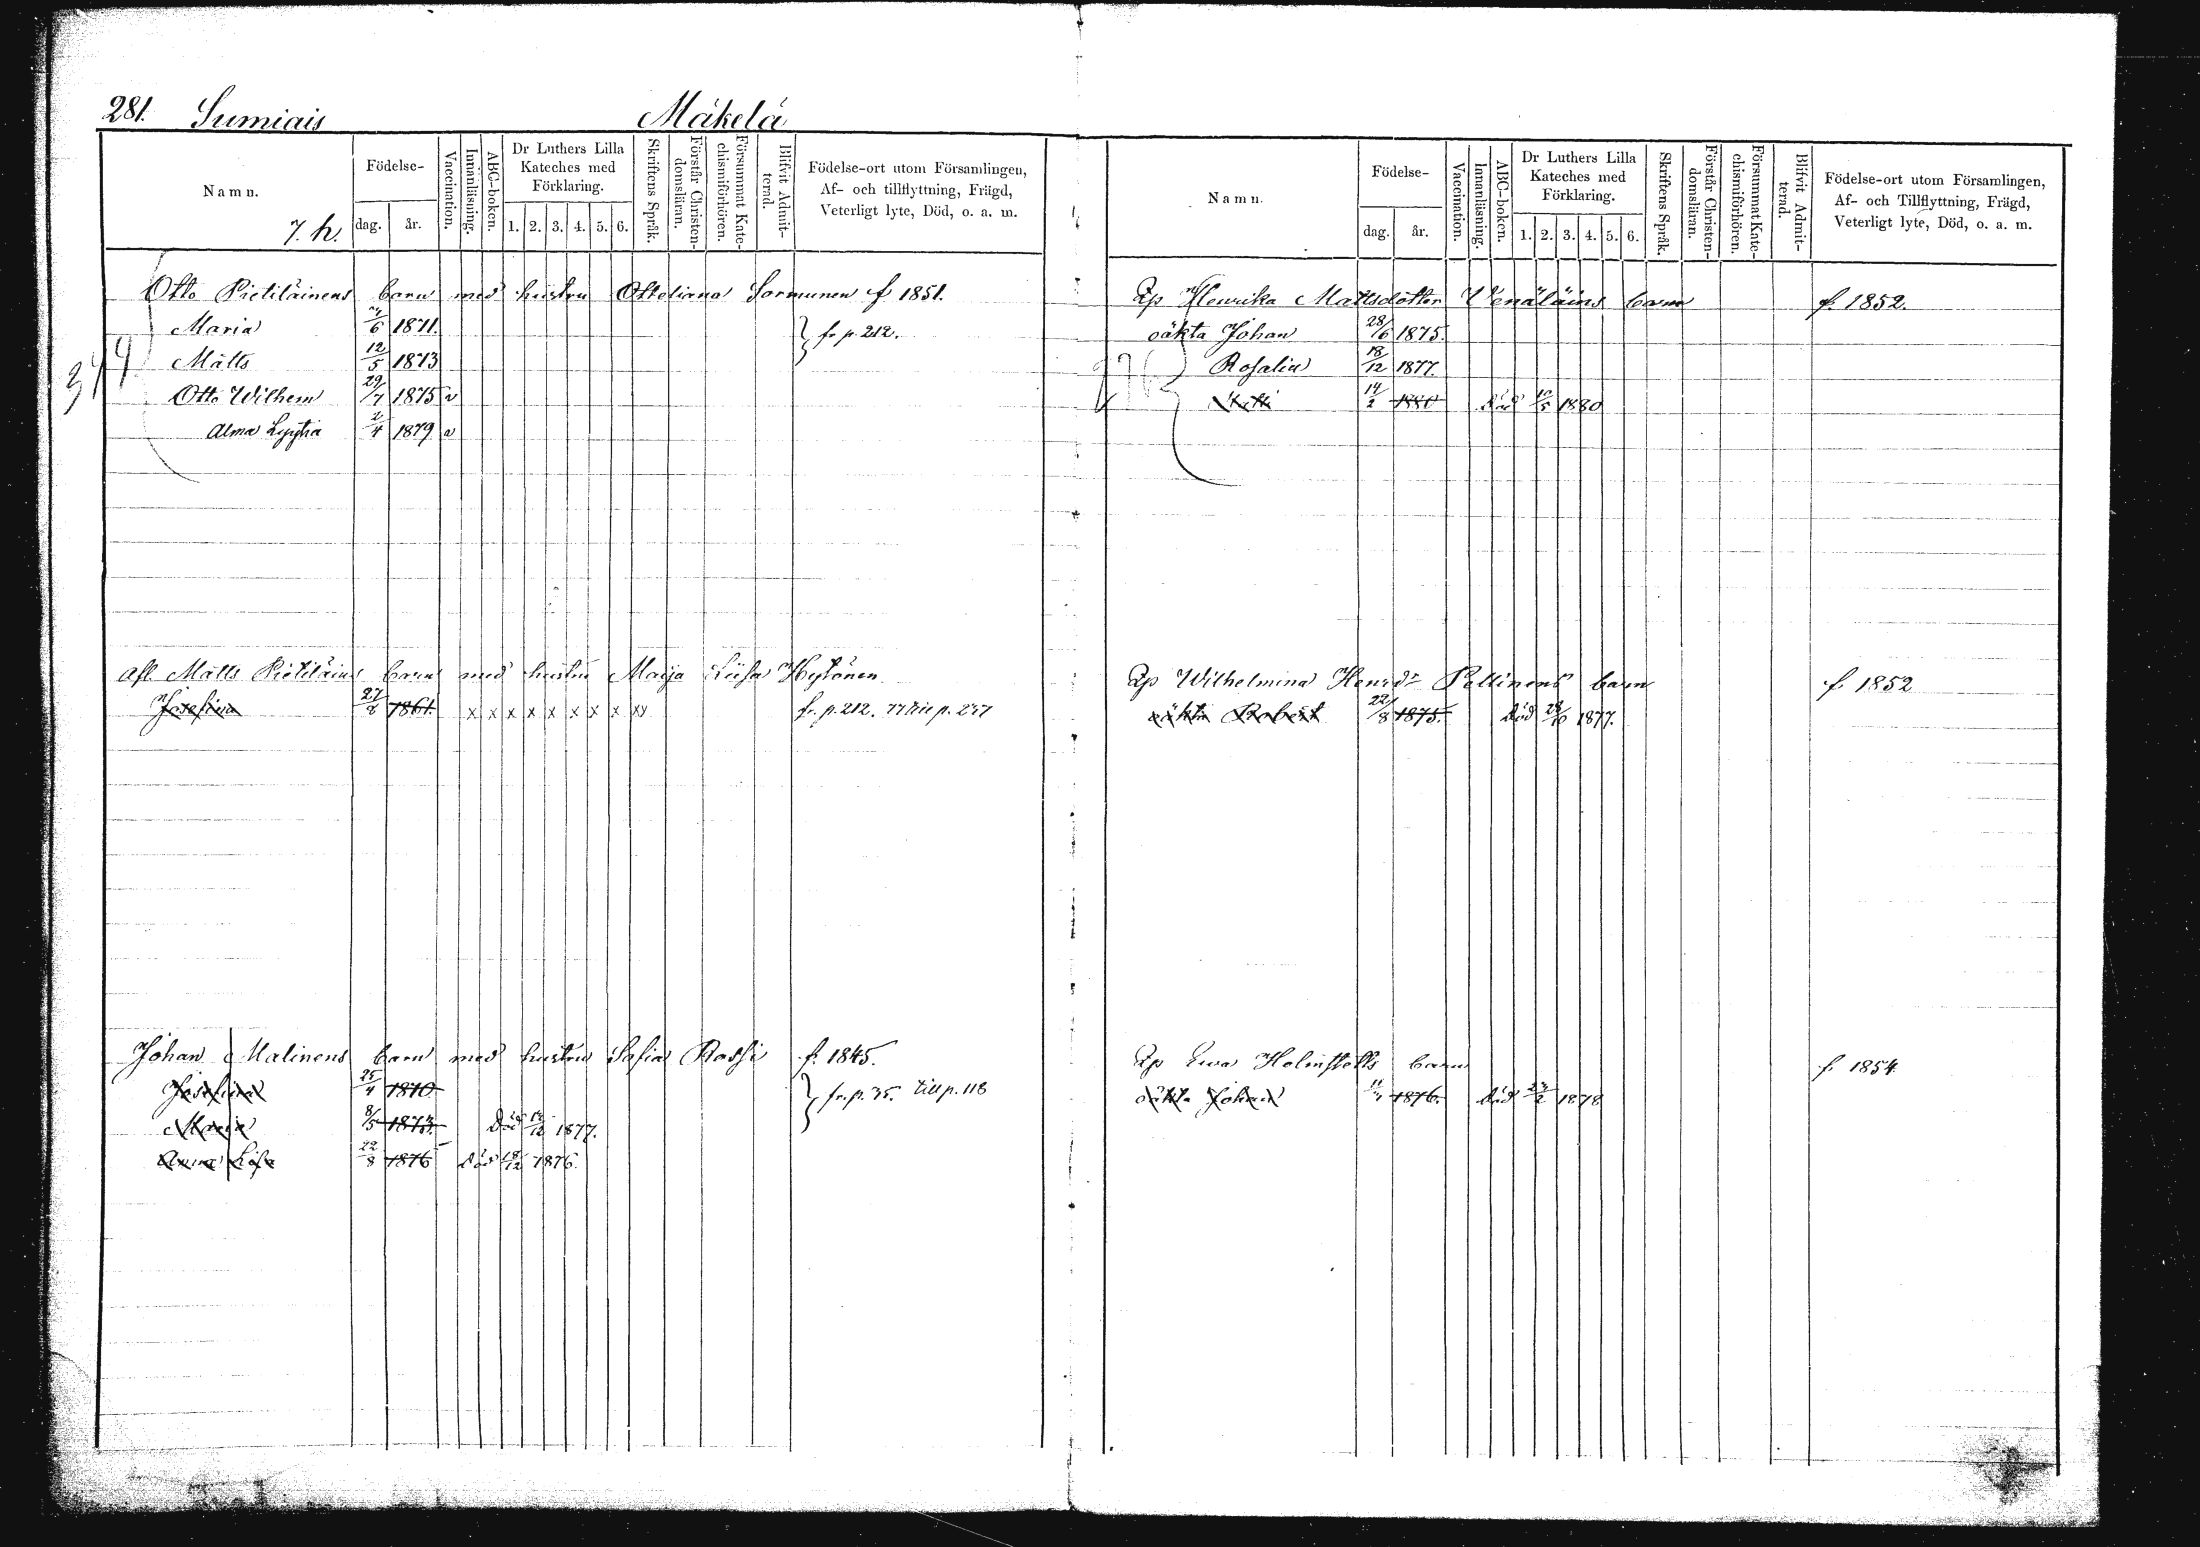 281. Sumiais Mäkelä
Namn.
7. h.
Födelse-
dag. år.
Vaccination.
Innanläsning.
ABC-boken.
Dr Luthers Lilla
Kateches med
Förklaring.
1. 2. 3. 4. 5. 6.
Skriftens Språk.
Förstår Christen-
domsläran.
Försummat Kate-
chismiförhören.
Blifvit Admit-
terad.
Födelse-ort utom Församlingen,
Af- och tillflyttning, Frägd,
Veterligt lyte, Död, o. a. m.
Otto Pietiläinens barn med hustru Otteliana Sormunen f 1851.
Maria 6 1871. fr p. 212.
Matts 12/5 1873
Otto Wilhem 29/7 1875 v
Alma Lyytia 2/4 1879 v
Afl. Matts Pietiläins barn med hustru Maija Liisa Hytönen
Josefina 27/8 1861. x x x x x x x x xy fr. p. 212.
Johan Malinens barn med hustru Sofia Rossi f. 1845.
Josefina 25/4 1870 fr. p. 35. till p. 118
Maria 8/5 1873. Död 1877.
Anna Lisa 22/8 1876 Död 1876.
Namn.
Födelse-
dag. år.
Vaccination.
Innanläsning.
ABC-boken.
Dr Luthers Lilla
Kateches med
Förklaring.
1. 2. 3. 4. 5. 6.
Skriftens Språk.
Förstår Christen-
domsläran.
Försummat Kate-
chismiförhören.
Blifvit Admit-
terad.
Födelse-ort utom Församlingen,
Af- och Tillflyttning, Frägd,
Veterligt lyte, Död, o. a. m.
Qp Henrika Mattsdotter Wenäläins barn f. 1852.
oäkta Johan 28/6 1875.
Rosalia 18/12 1877.
14/2 1880 Död 1880
Qp Wilhelmina Henrdr Pellinens barn f 1852
oäkta Robert 22/8 1875. Död 28/10 1877.
Qp Ewa Holmstells barn f 1854
oäkta Johan 1876. Död 1878